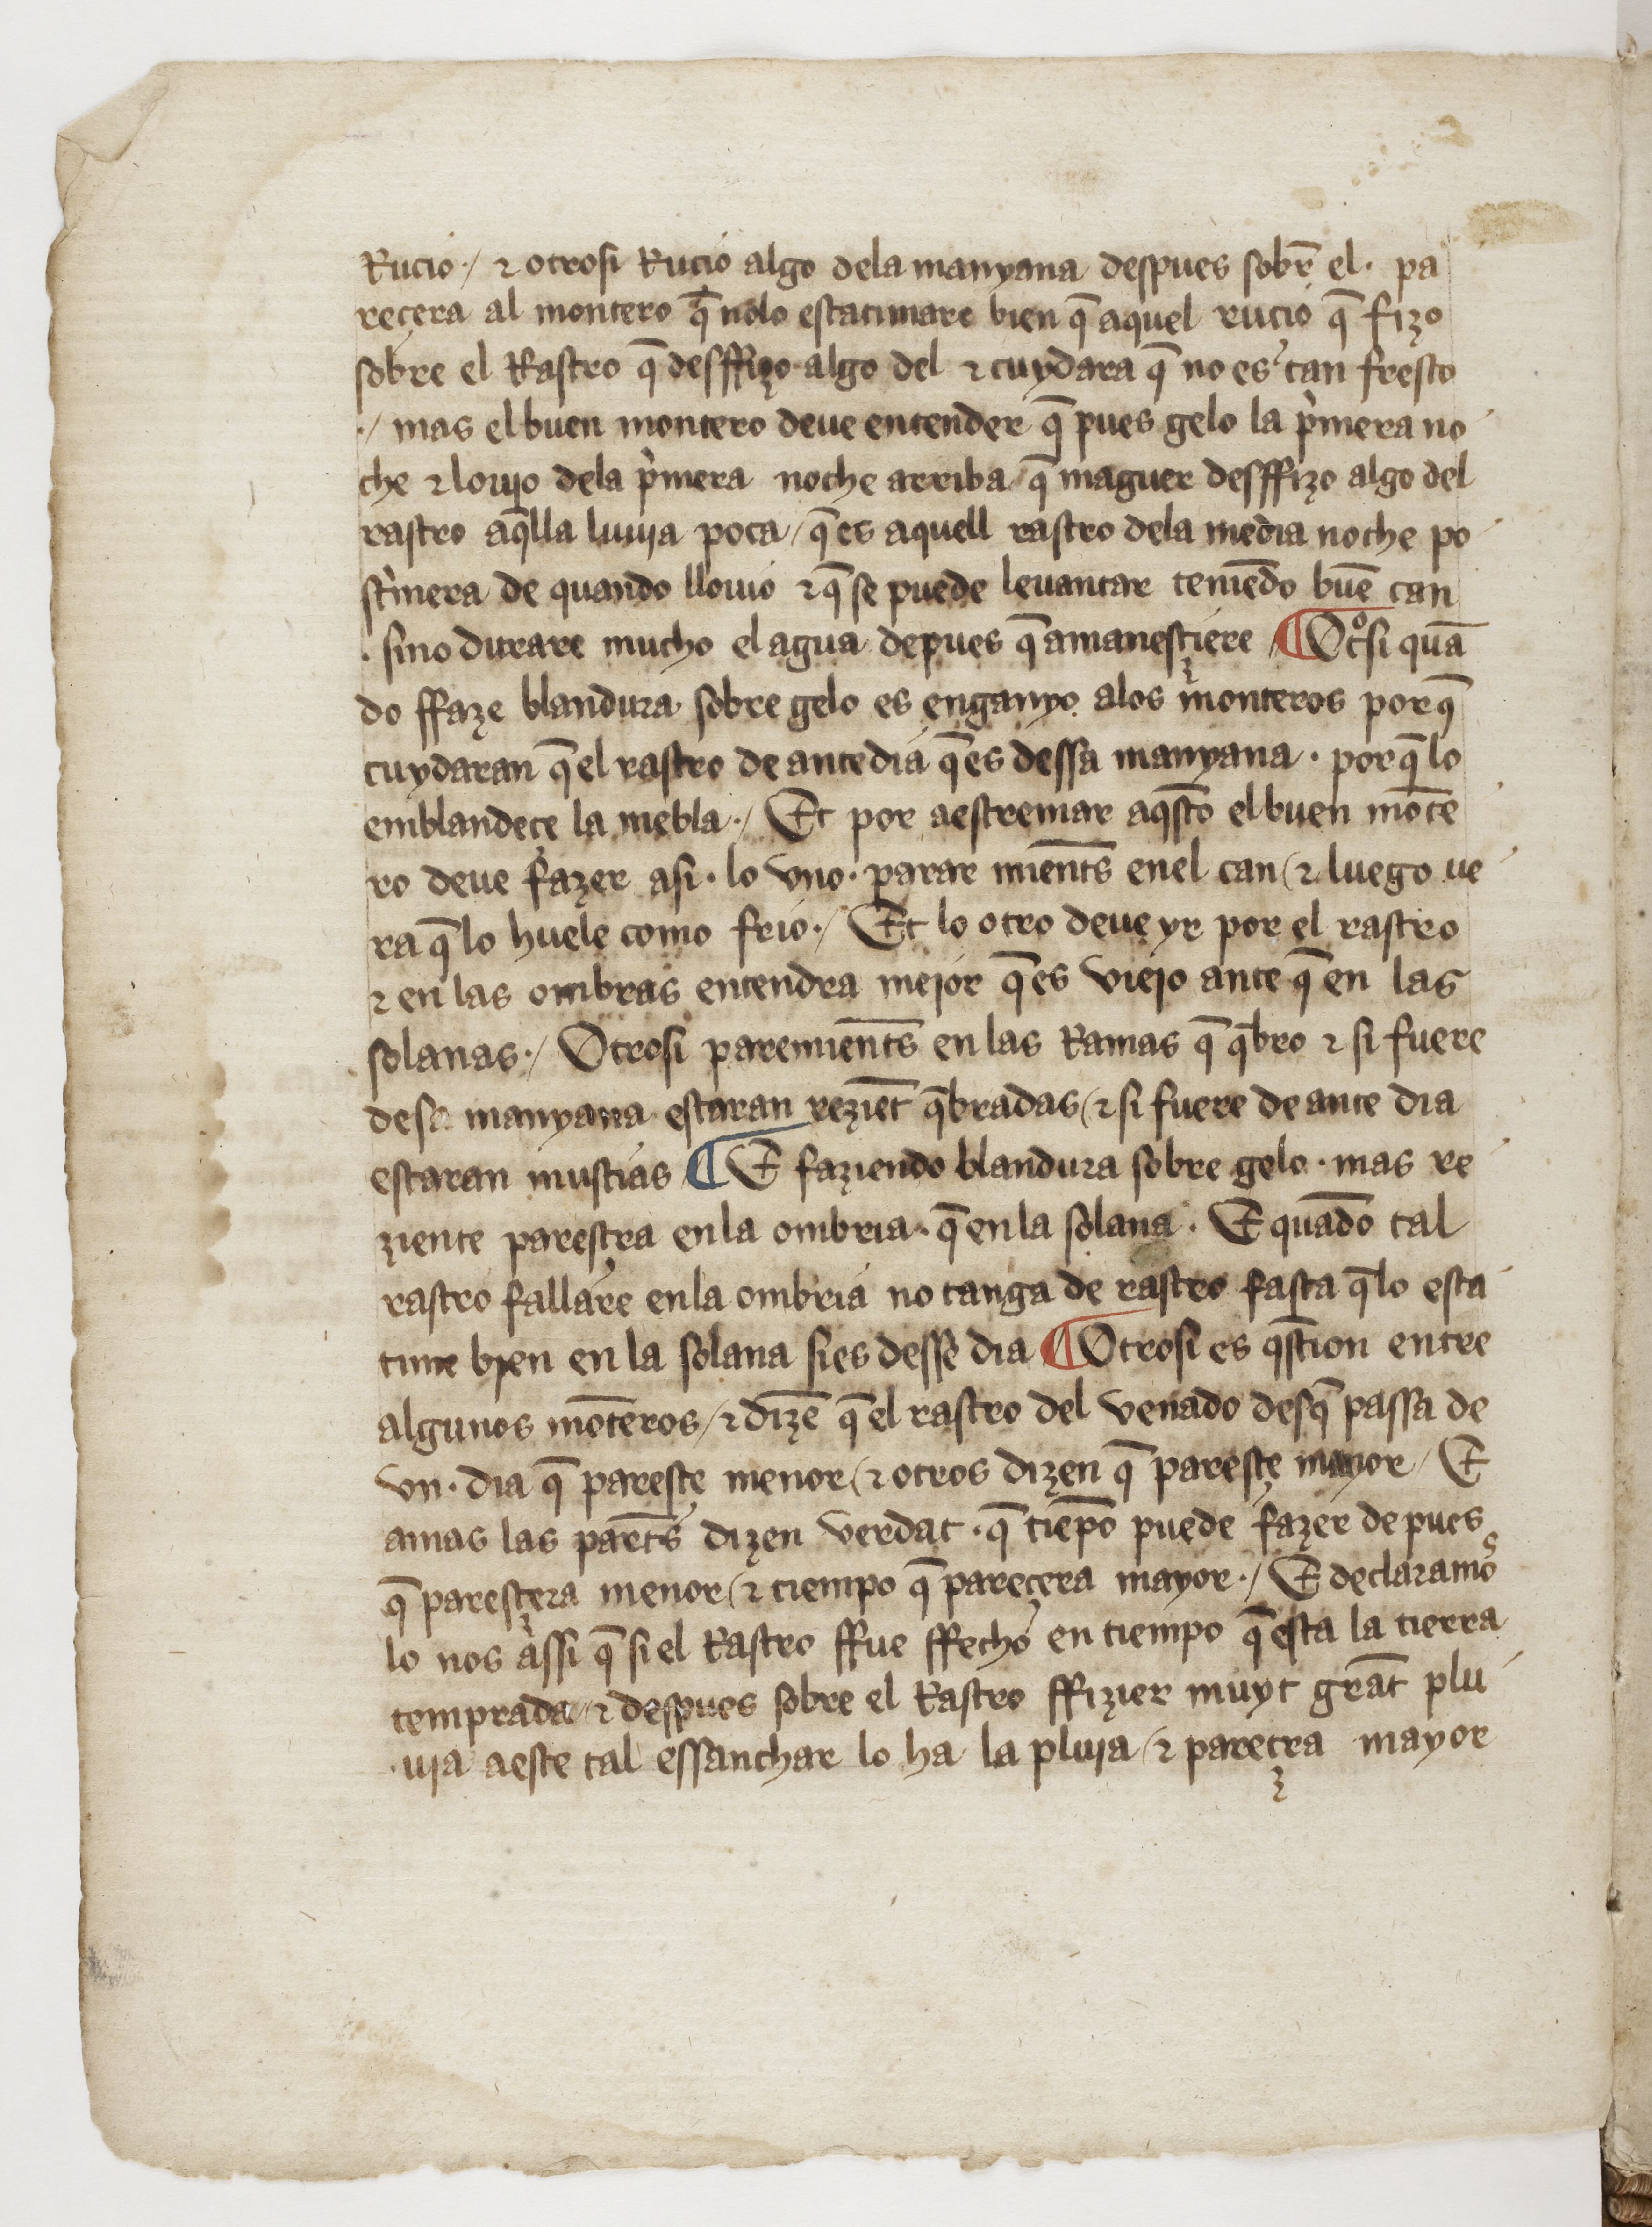 Rucio ./ ⁊ otrosi Rucio algo dela manyana despues sobr̄ el · pa
reçera al montero q̄ nolo estatimare bien q̄ aquel rucio q̄ fizo
sobre el Rastro q̄ desffizo algo del ⁊ cuydara q̄ no es tan fresco
./ mas el buen montero deue entender q̄ pues gelo la pͥmera no
che ⁊ louio dela pͥmera noche arriba / q̄ maguer desffizo algo del
rastro aq̄lla luuia poca / q̄ es aquell rastro dela media noche po
stͥmera de quando llouio ⁊ q̄ se puede leuantar teniēdo buē can
· sino durare mucho el agua depues q̄ amanesçiere / ¶ Otͦsi quā
do ffaze blandura sobre gelo es enganyo alos monteros porq̄
cuydaran q̄ el rastro de ante dia q̄ es dessa manyana · porq̄ lo
emblandeçe la niebla ./ Et por aestremar aq̄sto el buen mōte
ro deue fazer asi · lo vno · parar mient̄s enel can / ⁊ luego ve
ra q̄ lo huele como frio ./ Et lo otro deue yr por el rastro
⁊ en las ombras entendra mejor q̄ es viejo ante q̄ en las
solanas ./ Otrosi paremient̄s en las Ramas q̄ q̄bro ⁊ si fuere
desa manyana estaran rezient̄ q̄bradas / ⁊ si fuere de ante dia
estaran mustias ¶ E faziendo blandura sobre gelo · mas re
ziente paresçra enla ombria · q̄ enla solana · E quādo tal
rastro fallare enla ombria no tanga de rastro fasta q̄ lo esta
time bien en la solana si es desse dia ¶ Otrosi es q̄stion entre
algunos mōteros / ⁊ dizē q̄ el rastro del venado desq̄ passa de
vn · dia q̄ paresçe menor / ⁊ otros dizen q̄ paresçe mayor / E
amas las part̄s dizen verdat · q̄ tiēpo puede fazer depues
q̄ paresçera menor / ⁊ tiempo q̄ pareçera mayor ./ E declaramoˢ
lo nos assi q̄ si el Rastro ffue ffecho en tiempo q̄ esta la tierra
temprada / ⁊ despues sobre el Rastro ffizier muyt grāt plu
·uia aeste tal essanchar lo ha la pluia / ⁊ pareçra mayor